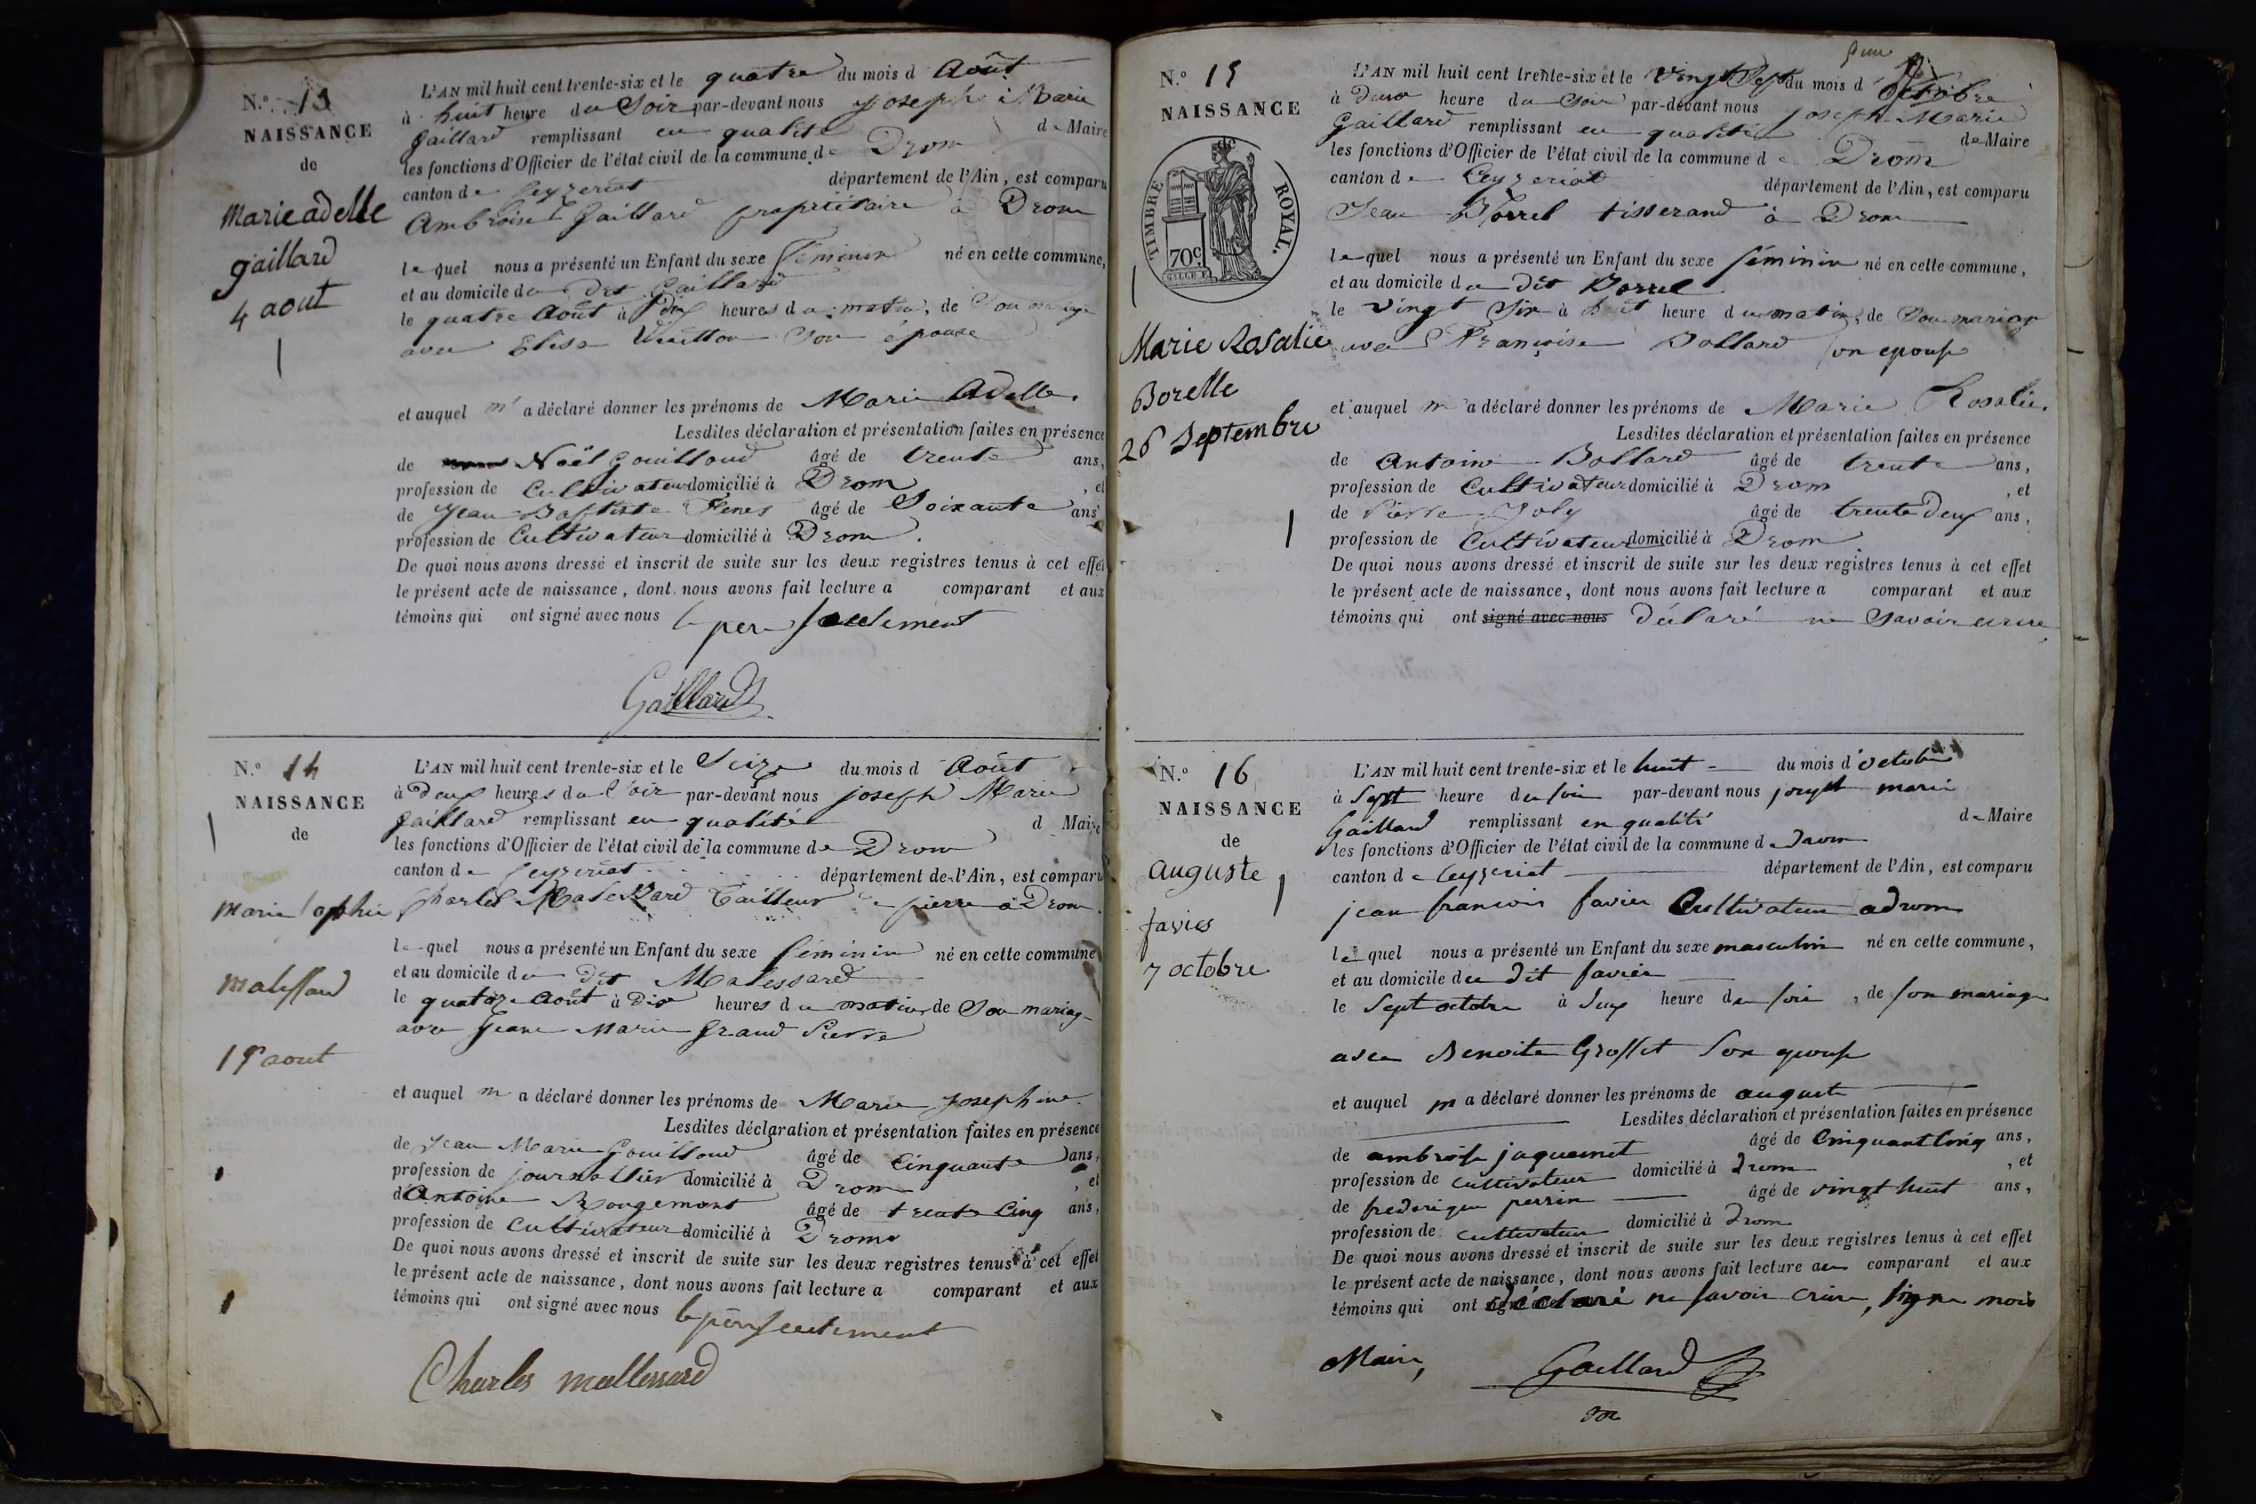 N.º 13
NAISSANCE
de
Marie adelle
gaillard
4 aout
L'AN mil huit cent trente-six et le quatre du mois d Août
à huit heure du Soir par-devant nous Joseph Marie
Gaillard remplissant en qualité de Maire
les fonctions d'Officier de l'état civil de la commune de Drom
canton de Ceyzeriat département de l'Ain, est comparu
Ambroise Gaillard propriétaire à Drom
lequel nous a présenté un Enfant du sexe féminin né en cette commune,
et au domicile du dit Gaillard
le quatre Août à dix heures du matin, de Son mariage
avec Elise Son épouse
et auquel m' a déclaré donner les prénoms de Marie Adelle.
Lesdites déclaration et présentation faites en présence
de Noël Gouilloud âgé de trente ans,
profession de Cultivateur domicilié à Drom, et
de Jean Baptiste âgé de Soixante ans
profession de Cultivateur domicilié à Drom.
De quoi nous avons dressé et inscrit de suite sur les deux registres tenus à cet effet
le présent acte de naissance, dont nous avons fait lecture a comparant et aux
témoins qui ont signé avec nous le pere seulement
Gaillard
N.º 14
NAISSANCE
de
Marie Sophie
malessard
15 aout
L'AN mil huit cent trente-six et le Seize du mois d Août
à deux heures du Soir par-devant nous joseph Marie
Gaillard remplissant en qualité d Maire
les fonctions d'Officier de l'état civil de la commune de Drom
canton de Ceyzeriat département de l'Ain, est comparu
Charles Malessard Tailleur de pierre à Drom
lequel nous a présenté un Enfant du sexe féminin né en cette commune
et au domicile du dit Malessard
le quatorze Août à dix heures du matin de Son mariage
avec Jeanne Marie Grand Pierre
et auquel m a déclaré donner les prénoms de Marie Josephine.
Lesdites déclaration et présentation faites en présence
de Jean Marie Gouilloud âgé de Cinquante ans,
profession de journallier domicilié à Drom, et
d'Antoine Rougemont âgé de trente Cinq ans,
profession de Cultivateur domicilié à Drom
De quoi nous avons dressé et inscrit de suite sur les deux registres tenus à cet effet
le présent acte de naissance, dont nous avons fait lecture a comparant et aux
témoins qui ont signé avec nous le père seulement
Charles mallessard
N.º 15
NAISSANCE
de
TIMBRE ROYAL.
70c.
Marie Rosalie
Borelle
26 Septembre
L'AN mil huit cent trente-six et le Vingt Sept du mois d' Octobre
à heure du Soir par-devant nous Joseph Marie
Gaillard remplissant en qualité de Maire
les fonctions d'Officier de l'état civil de la commune de Drom
canton de Ceyzeriat département de l'Ain, est comparu
Jean Borrel tisserand à Drom
lequel nous a présenté un Enfant du sexe féminin né en cette commune,
et au domicile du dit Borrel
le Vingt Six à huit heure du matin, de Son mariage
avec Françoise Bollard Son epouse
et auquel m a déclaré donner les prénoms de Marie Rosalie.
Lesdites déclaration et présentation faites en présence
de Antoine Bollard âgé de trente ans,
profession de Cultivateur domicilié à Drom, et
de Pierre Joly âgé de trente deux ans,
profession de Cultivateur domicilié à Drom
De quoi nous avons dressé et inscrit de suite sur les deux registres tenus à cet effet
le présent acte de naissance, dont nous avons fait lecture a comparant et aux
témoins qui ont signé avec nous déclaré ne Savoir ecrire
N.º 16
NAISSANCE
de
auguste
favier
7 octobre
L'AN mil huit cent trente-six et le huit du mois d'octobre
à Sept heure du soir par-devant nous joseph marie
Gaillard remplissant en qualité de Maire
les fonctions d'Officier de l'état civil de la commune de Drom
canton de Ceyzeriat département de l'Ain, est comparu
jean francois favier Cultivateur a drom
lequel nous a présenté un Enfant du sexe masculin né en cette commune,
et au domicile du dit favier
le Sept octobre à heure du soir, de son mariage
avec Benoite Grosset Son epouse
et auquel m a déclaré donner les prénoms de auguste
Lesdites déclaration et présentation faites en présence
de ambroise jaquemet âgé de Cinquant Cinq ans,
profession de cultivateur domicilié à drom, et
de frederique perrin âgé de vingt huit ans,
profession de cultivateur domicilié à drom
De quoi nous avons dressé et inscrit de suite sur les deux registres tenus à cet effet
le présent acte de naissance, dont nous avons fait lecture au comparant et aux
témoins qui ont déclaré ne savoir crire, signe nous
Maire,
Gaillard